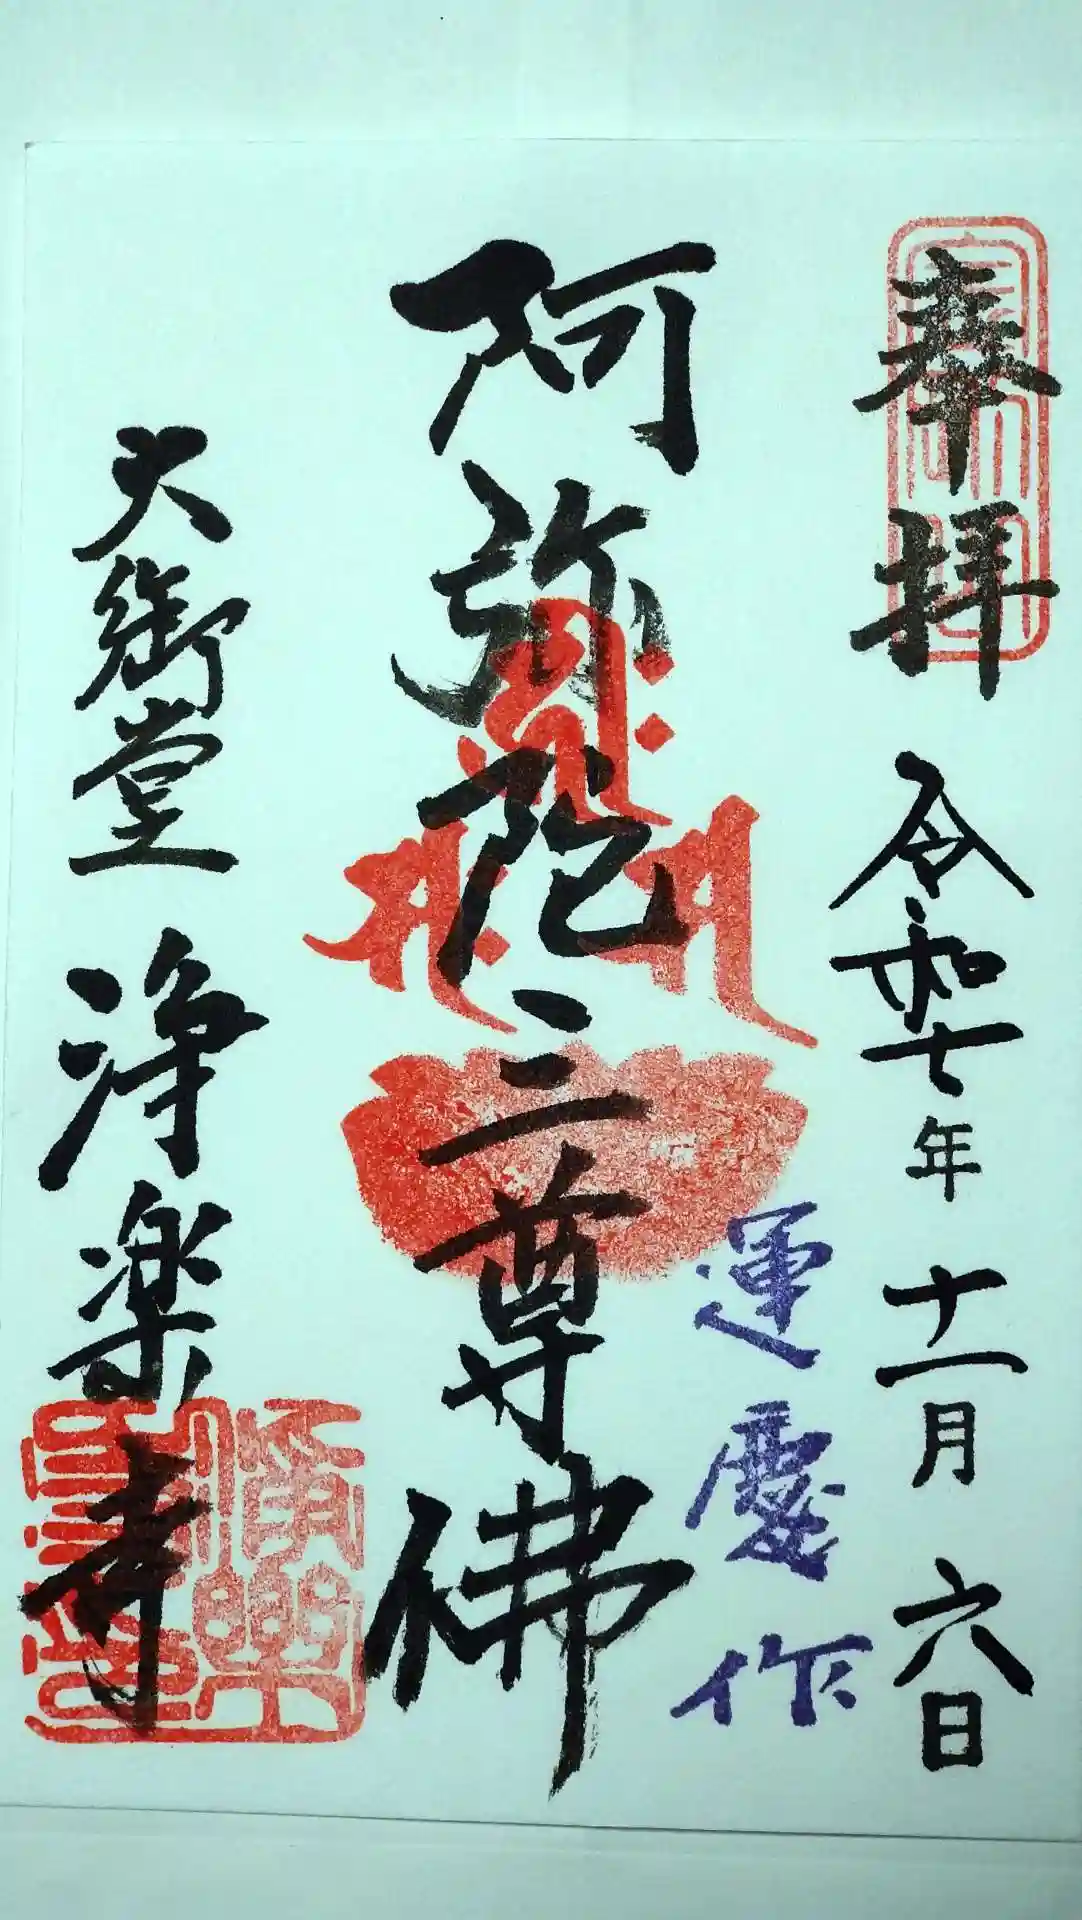 奉拝
令和七年十一月六日
運慶作
阿弥陀三尊佛
大御堂
浄楽寺